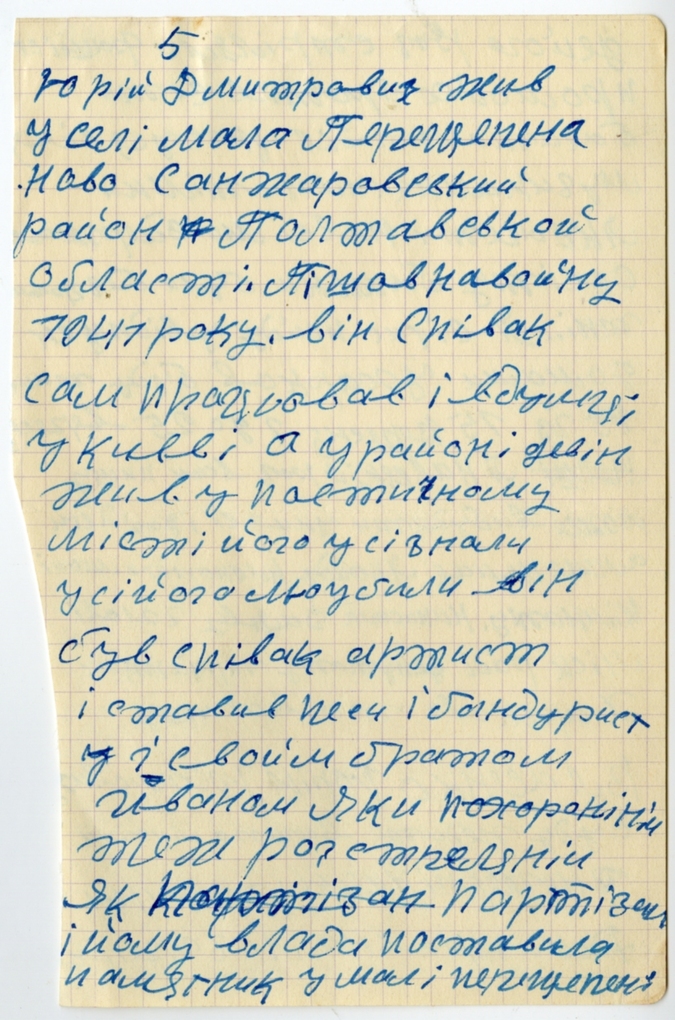 5
Юрій Дмитрович жив
у селі мала Перещепена
Ново Санжаровський
район Полтавской
області. Пішов на войну
1941 року. він Співак
сам працював і вдумці
у києві а у районі де він
жив у поетичному
місті його усі знали
усі його люубили він
був співак артист
і ставив песи і бандурист
у і своїм братом
Иваном яки похоронінй
теж розстреляній
як партізан партізан
і йому влада поставила
памятник у малі перещепені